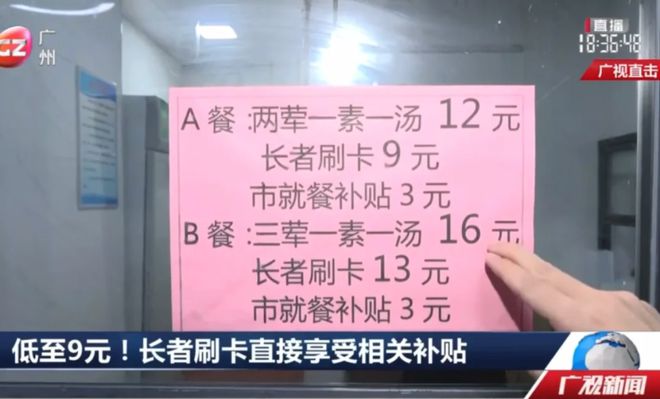 GZ
广州
直播
18:36:48
广视直击
A 餐:两荤一素一汤 12 元
长者刷卡 9 元
市就餐补贴 3 元
B 餐:三荤一素一汤 16 元
长者刷卡 13 元
市就餐补贴 3 元
低至9元！长者刷卡直接享受相关补贴
广视新闻